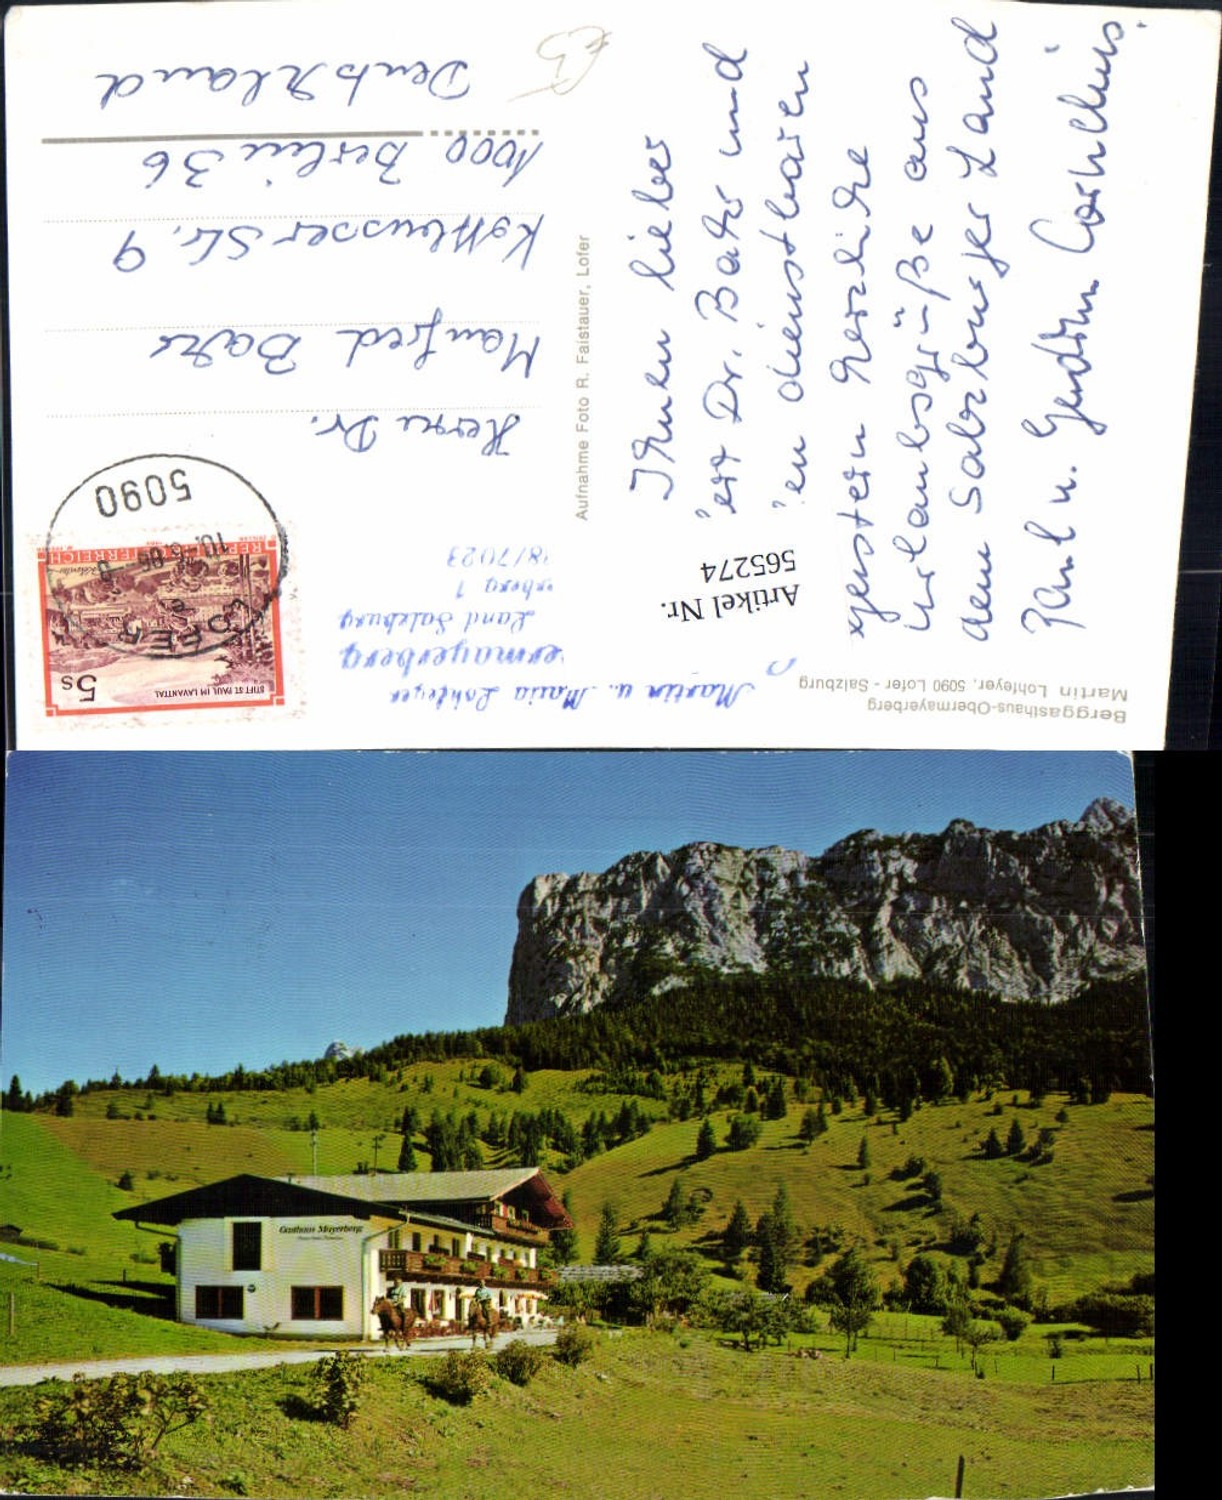 Berggasthaus-Obermayerberg
Martin Lohfeyer, 5090 Lofer - Salzburg
Martin u. Maria Lohfeyer
ermayerberg
Land Salzburg
erberg 1
8/7023
Artikel Nr.
565274
STIFT ST. PAUL IM LAVANTAL
5s
REPUBLIK ÖSTERREICH
LOFER
10.-6.86-9
5090
Herrn Dr.
Manfred
Kottbusser Str. 9
1000 Berlin 36
Deutschland
Aufnahme Foto R. Faistauer, Lofer
Ihnen lieber
Dr. und
'en dienstbaren
geistern herzliche
Urlaubsgrüße aus
dem Salzburger Land
u.
Gasthaus Mayerberg